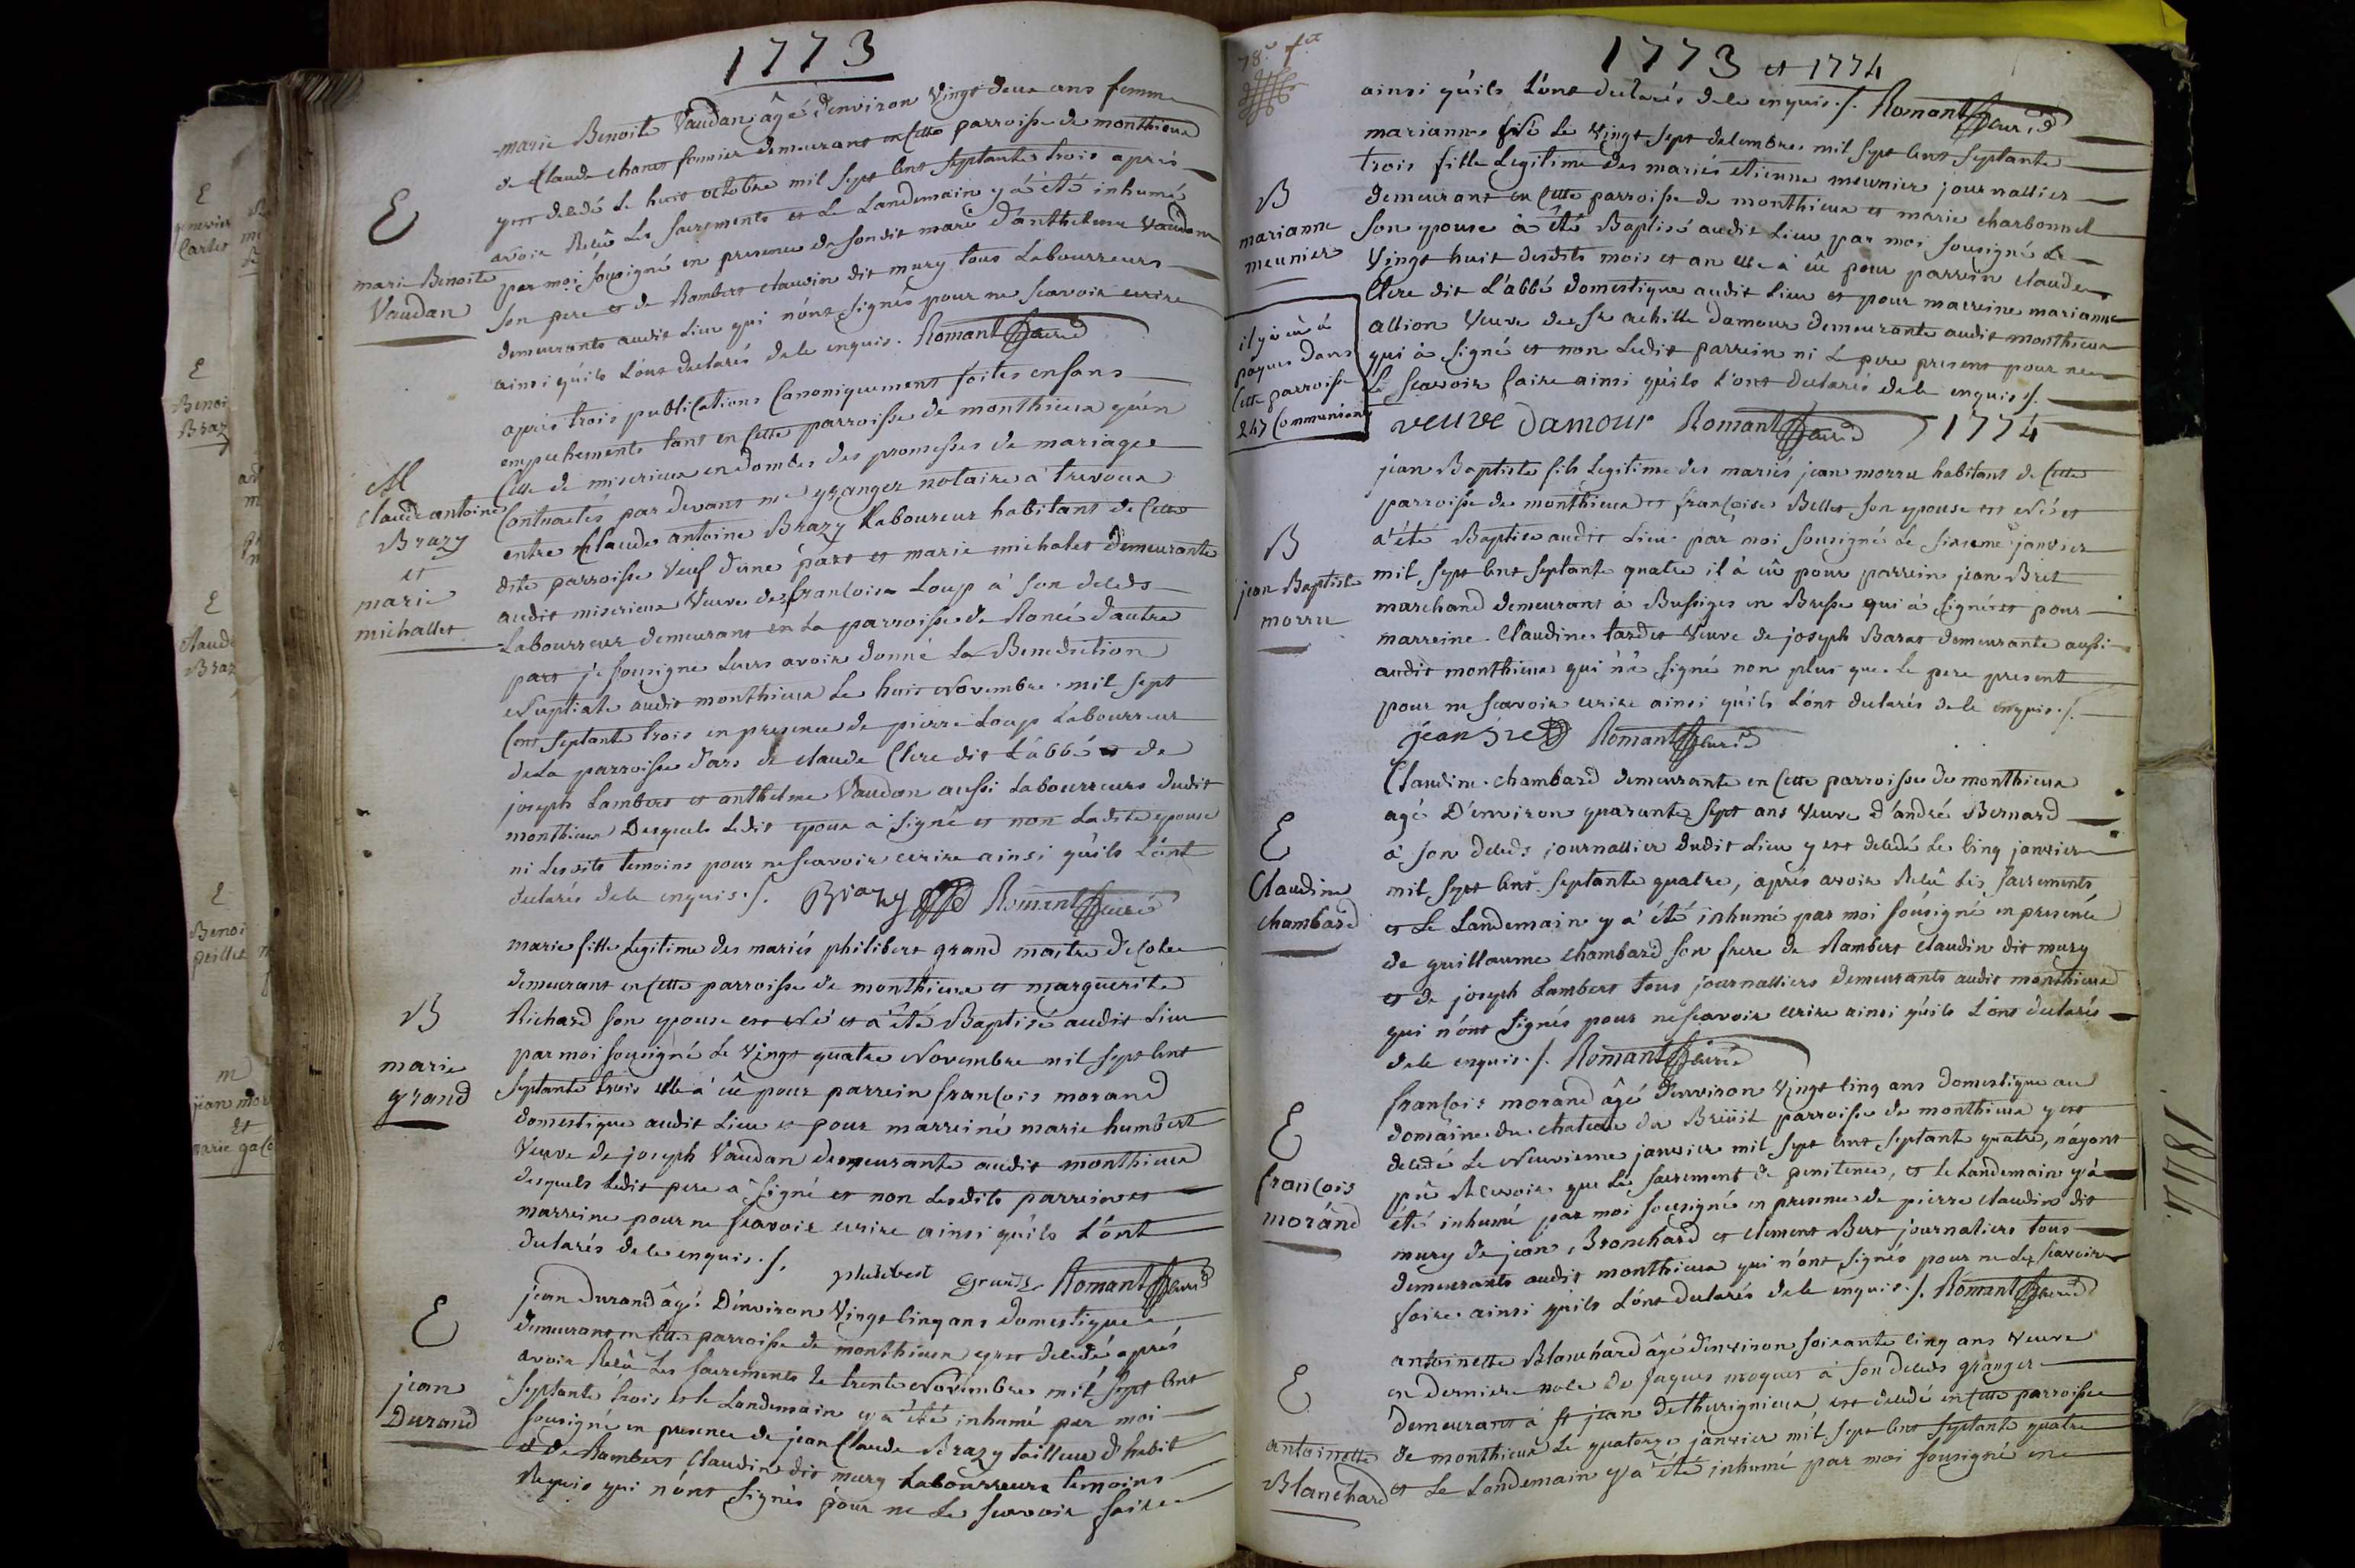 1773
marie Benoite Vaudan âgé d'environ Vingt deux ans femme
de Claude chanet fermier demeurant en Cette parroisse de monthieux
y est decedé Le huit octobre mil sept Cent septante trois aprés
avoir Recû Les sacrements et Le Landemain y a été inhumé
par moi sousigné en presence de sondit mari d'anthelme Vaudan
son pere et de Rambert claudin dit mury tous Labourreurs
demeurants audit Lieu qui n'ont signés pour ne scavoir ecrire
ainsi qu'ils L'ont declarés de le enquis. Romant curé
E
marie Benoite
Vaudan
aprés trois publications Canoniquement faites en sans
empechements tant en Cette parroisse de monthieux qu'en
Celle de miserieux en dombes des promesses de mariage
Contractés par devant me granger notaire à trevoux
entre Claude antoine Brazy Laboureur habitant de Cette
dite parroisse Veuf d'une part et marie michalet demeurante
audit miserieux Veuve de francois Loup à son deceds
Labourreur demeurant en La parroisse de Rancé d'autre
part je sousigné Leurs avoir donné La Benediction
Nuptiale audit monthieux Le huit Novembre mil sept
Cent septante trois en presence de pierre Loup Labourreur
de La parroisse d'ars de claude Clere dit L'abbé et de
joseph Lambert et anthelme Vaudan aussi Labourreurs dudit
monthieux Desquels Ledit epoux a signé et non Ladite epouse
ni Lesdits temoins pour ne scavoir ecrire ainsi qu'ils L'ont
declarés de le enquis. /. Brazy Romant curé
M
Claude antoine
Brazy
et
marie
michallet
marie fille Legitime des mariés philibert grand maitre d'ecole
demeurant en Cette parroisse de monthieux et marguerite
Richard son epouse est Né et a été Baptisé audit Lieu
par moi sousigné Le Vingt quatre Novembre mil sept Cent
septante trois elle a eû pour parrein francois morand
domestique audit Lieu et pour marreine marie humbert
Veuve de joseph Vaudan demeurante audit monthieux
desquels Ledit pere a signé et non Lesdits parrein et
marreine pour ne scavoir ecrire ainsi qu'ils L'ont
declarés de le enquis. /. philibert grand Romant curé
B
marie
grand
jean Durand âgé D'environ Vingt cinq ans domestique
demeurant en Cette parroisse de monthieux y est decedé aprés
avoir Recû Les sacrements Le trente Novembre mil sept Cent
septante trois et le Landemain y a été inhumé par moi
sousigné en presence de jean Claude Brazy tailleur d'habit
et de Rambert Claudin dit mury Labourreurs temoins
Requis qui n'ont signés pour ne Le scavoir faire
E
jean
Durand
78e ft
1773 et 1774
ainsi qu'ils L'ont declarés de le enquis. /. Romant curé
marianne Né Le Vingt sept decembre mil sept Cent septante
trois fille Legitime des mariés etienne meunier journallier
demeurant en Cette parroisse de monthieux et marie charbonnet
son epouse à été Baptisé audit Lieu par moi sousigné Le
Vingt huit desdits mois et an elle à eû pour parrein claude
Clere dit L'abbé domestique audit Lieu et pour marreine marianne
allion Veuve de sr achille damour demeurante audit monthieux
qui à signé et non Ledit parrein ni Le pere present pour ne
Le scavoir faire ainsi qu'ils L'ont declarés de le enquis /.
veuve damour Romant curé 1774
B
marianne
meunier
il y a eû à
paques dans
Cette parroisse
247 Communions
jean Baptiste fils Legitime des mariés jean morru habitant de Cette
parroisse de monthieux et francoise Bellet son epouse est Né et
a été Baptisé audit Lieu par moi sousigné Le sixieme janvier
mil sept Cent septante quatre il à eû pour parrein jean Bret
marchand demeurant à Bussiges en Bresse qui à signé et pour
marreine Claudine tardet Veuve de joseph Barat demeurante aussi
audit monthieux qui n'a signé non plus que Le pere present
pour ne scavoir ecrire ainsi qu'ils L'ont declarés de le enquis. /.
jean Bret Romant curé
B
jean Baptiste
morru
Claudine chambard demeurante en Cette parroisse de monthieux
agé D'environ quarante sept ans Veuve d'andré Bernard
à son deceds journallier dudit Lieu y est decedé Le cinq janvier
mil sept Cent septante quatre, aprés avoir Recû Les sacrements
et Le Landemain y a été inhumé par moi sousigné en presence
de guillaume chambard son frere de Rambert claudin dit mury
et de joseph Lambert tous journalliers demeurants audit monthieux
qui n'ont signés pour ne scavoir ecrire ainsi qu'ils L'ont declarés
de le enquis. /. Romant curé
E
Claudine
chambard
francois morand âgé d'environ Vingt cinq ans domestique au
domaine du chateau du Breüil parroisse de monthieux y est
decedé Le Neuvieme janvier mil sept Cent septante quatre, n'ayant
pû Recevoir que Le sacrement de penitence, et le Landemain y à
été inhumé par moi sousigné en presence de pierre claudin dit
mury de jean Bronchard et clement Bert journaliers tous
demeurants audit monthieux qui n'ont signés pour ne Le scavoir
faire ainsi qu'ils L'ont declarés de le enquis. /. Romant curé
E
francois
morand
antoinette Blanchard âgé d'environ soixante cinq ans veuve
en derniere noce de jaques moquet à son deceds granger
demeurant à st jean de thurignieux est decedé en Cette parroisse
de monthieux Le quatorze janvier mil sept Cent septante quatre
et Le Landemain y a été inhumé par moi sousigné en
E
antoinette
Blanchard